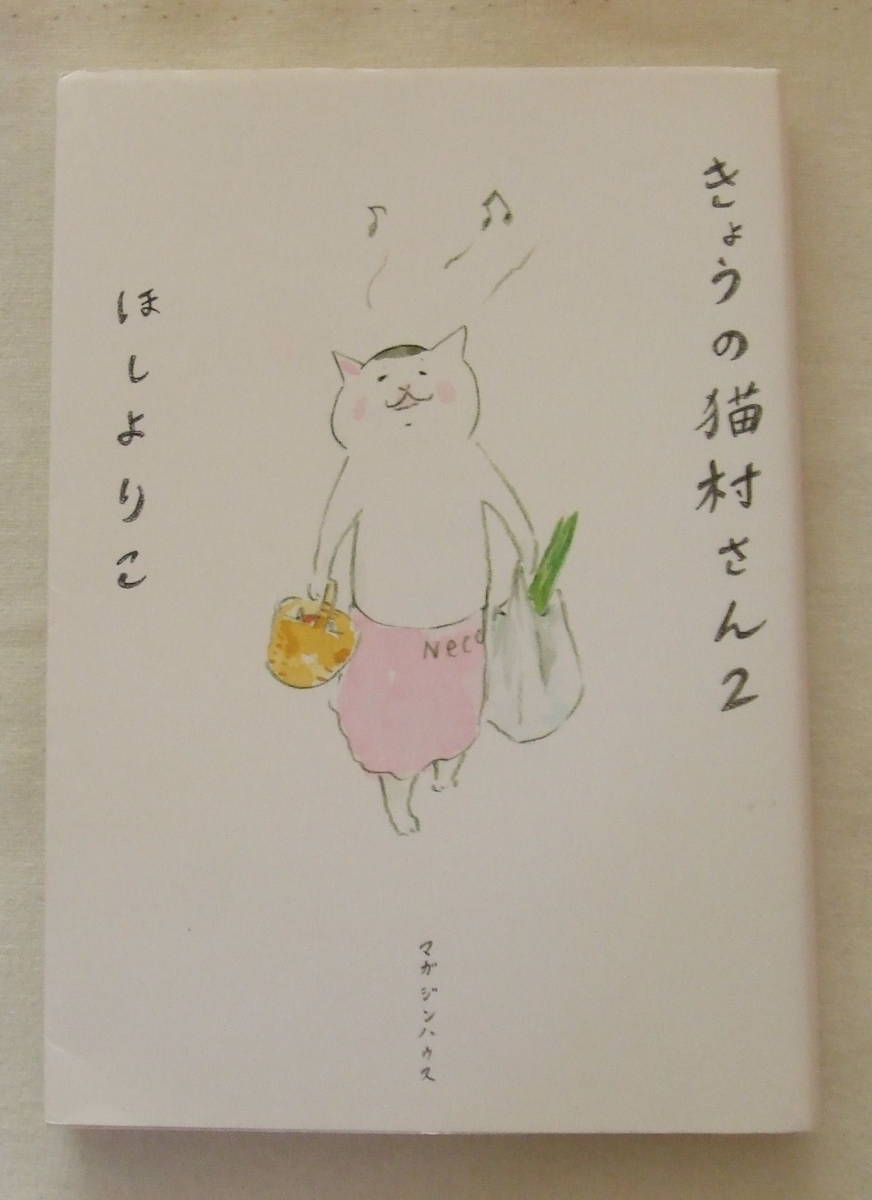 きょうの猫村さん2
ほしよりこ
Neco
マガジンハウス